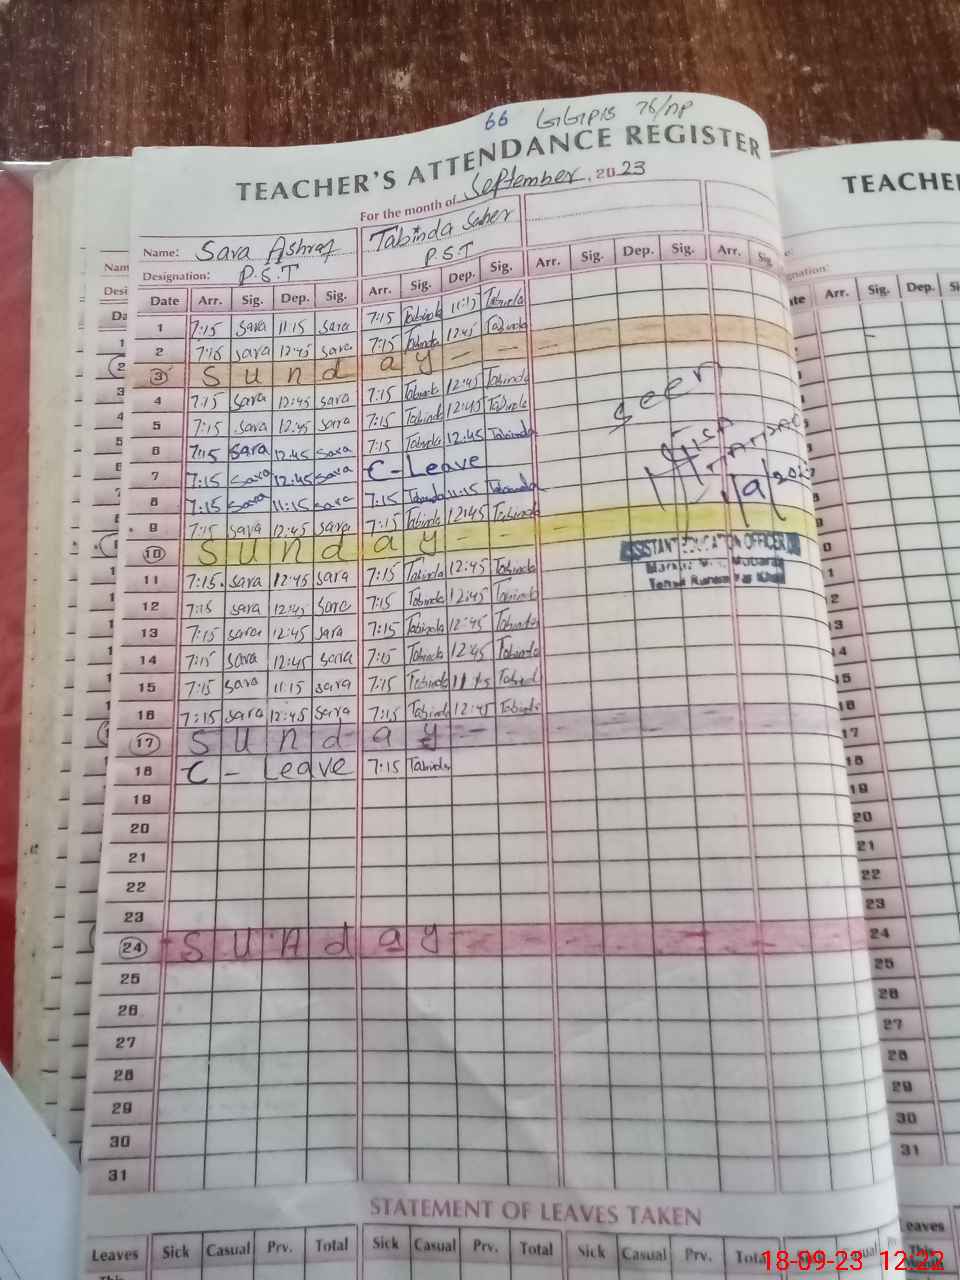 66 GGPS 76/NP
TEACHER'S ATTENDANCE REGISTER
For the month of September, 2023
Name: Sara Ashraf Tabinda Saher
Designation: P.S.T P.S.T
Date Arr. Sig. Dep. Sig. Arr. Sig. Dep. Sig. Arr. Sig. Dep. Sig. Arr. Sig.
1 7:15 Sara 11:15 Sara 7:15 Tabinda 11:15 Tabinda
2 7:15 Sara 12:45 Sara 7:15 Tabinda 12:45 Tabinda
3 Sunday - -
4 7:15 Sara 12:45 Sara 7:15 Tabinda 12:45 Tabinda
5 7:15 Sara 12:45 Sara 7:15 Tabinda 12:45 Tabinda
6 7:15 Sara 12:45 Sara 7:15 Tabinda 12:45 Tabinda
7 7:15 Sara 12:45 Sara C-Leave
8 7:15 Sara 11:15 Sara 7:15 Tabinda 11:15 Tabinda
9 7:15 Sara 12:45 Sara 7:15 Tabinda 12:45 Tabinda
10 Sunday - -
11 7:15 Sara 12:45 Sara 7:15 Tabinda 12:45 Tabinda
12 7:15 Sara 12:45 Sara 7:15 Tabinda 12:45 Tabinda
13 7:15 Sara 12:45 Sara 7:15 Tabinda 12:45 Tabinda
14 7:15 Sara 12:45 Sara 7:15 Tabinda 12:45 Tabinda
15 7:15 Sara 11:15 Sara 7:15 Tabinda 11:15 Tabinda
16 7:15 Sara 12:45 Sara 7:15 Tabinda 12:45 Tabinda
17 Sunday - -
18 C-Leave 7:15 Tabinda
19
20
21
22
23
24 Sunday - -
25
26
27
28
29
30
31
seen
ASSISTANT EDUCATION OFFICER
STATEMENT OF LEAVES TAKEN
Leaves Sick Casual Prv. Total Sick Casual Prv. Total Sick Casual Prv. Total
TEACHE
Arr. Sig. Dep.
18-09-23 12:22